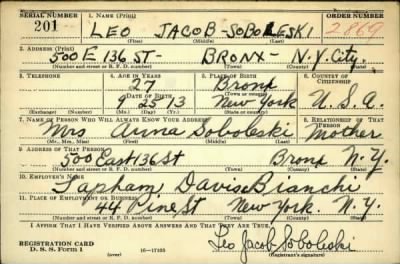 SERIAL NUMBER 1. NAME (Print) ORDER NUMBER
201 LEO JACOB-SOBOLESKI 2869
(First) (Middle) (Last)
2. ADDRESS (Print)
500 E 136 ST- BRONX- N.Y. City.
(Number and street or R. F. D. number) (Town) (County) (State)
3. TELEPHONE 4. AGE IN YEARS 5. PLACE OF BIRTH 6. COUNTRY OF CITIZENSHIP
27 Bronx
DATE OF BIRTH (Town or county)
9 25 13 New York U.S.A.
(Exchange) (Number) (Mo.) (Day) (Yr.) (State or country)
7. NAME OF PERSON WHO WILL ALWAYS KNOW YOUR ADDRESS 8. RELATIONSHIP OF THAT PERSON
Mrs Anna Soboleski Mother
(Mr., Mrs., Miss) (First) (Middle) (Last)
9. ADDRESS OF THAT PERSON
500 East 136 St Bronx N.Y.
(Number and street or R. F. D. number) (Town) (County) (State)
10. EMPLOYER'S NAME
Tapham Davis Bianchi
11. PLACE OF EMPLOYMENT OR BUSINESS
44 Pine St New York. N.Y.
(Number and street or R. F. D. number) (Town) (County) (State)
I AFFIRM THAT I HAVE VERIFIED ABOVE ANSWERS AND THAT THEY ARE TRUE.
REGISTRATION CARD
D. S. S. FORM 1 (over) 16-17105
Leo Jacob Soboleski
(Registrant's signature)